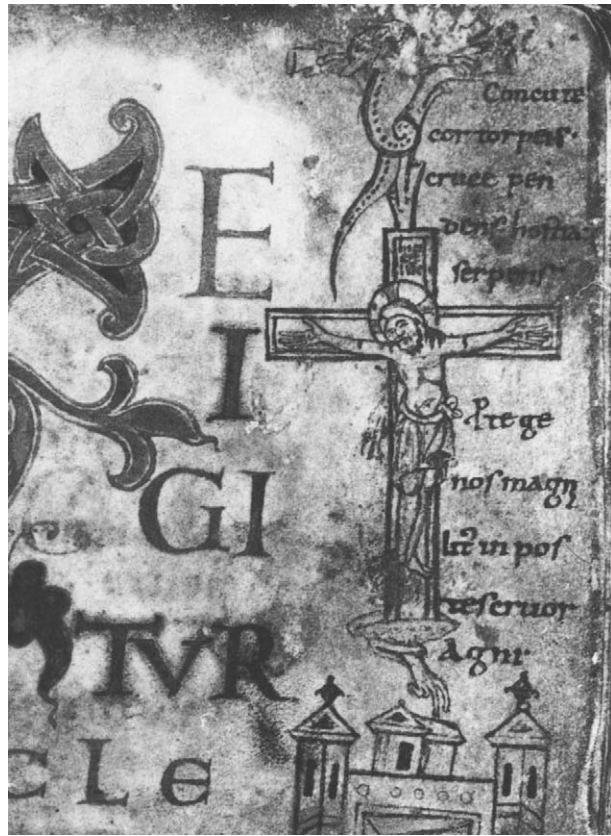 E
I
GI
TVR
CLE
Concute
cor torpens
cruce pen
dens hostia
serpens
nos magn
in pos
te seruor
Agni